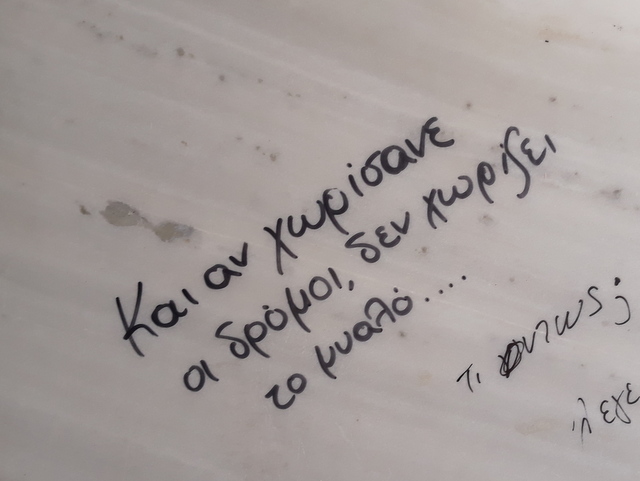 Και αν χωρίσανε
οι δρόμοι, δεν χωρίζει
το μυαλό....
Τι